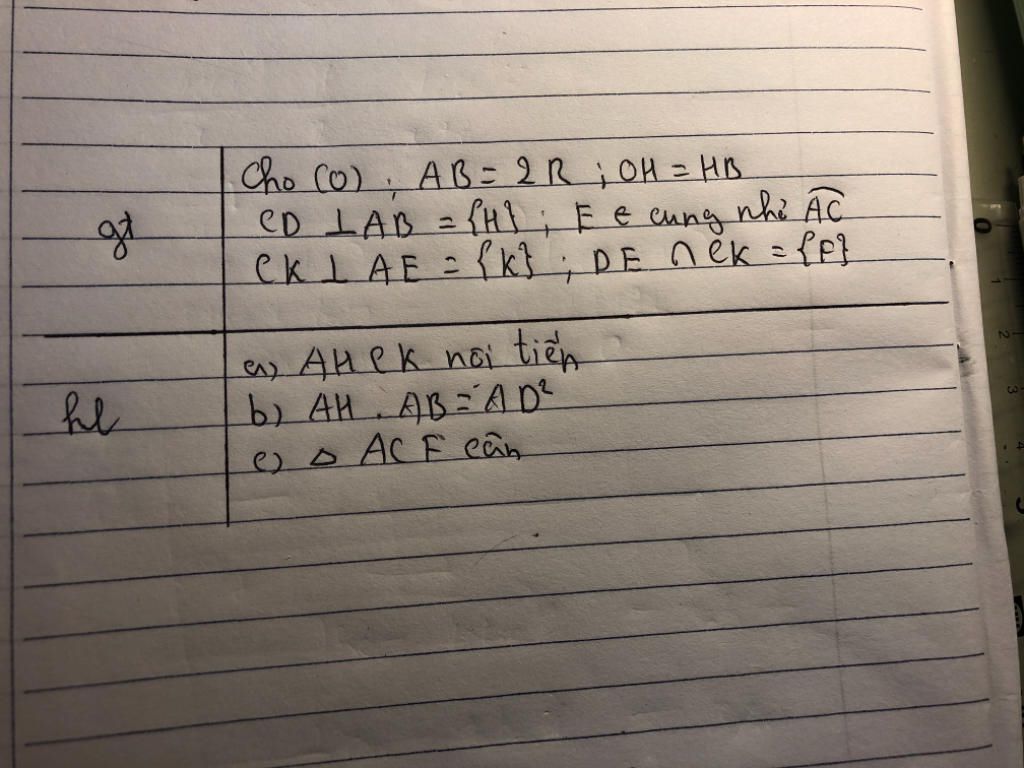 gt
Cho (O) ; AB = 2R ; OH = HB
CD ⊥ AB = {H} ; E ∈ cung nhỏ A͡C
CK ⊥ AE = {K} ; DE ∩ CK = {F}
kl
a) AHCK nội tiếp
b) AH . AB = AD²
c) △ ACF cân
0
1
2
3
4
5